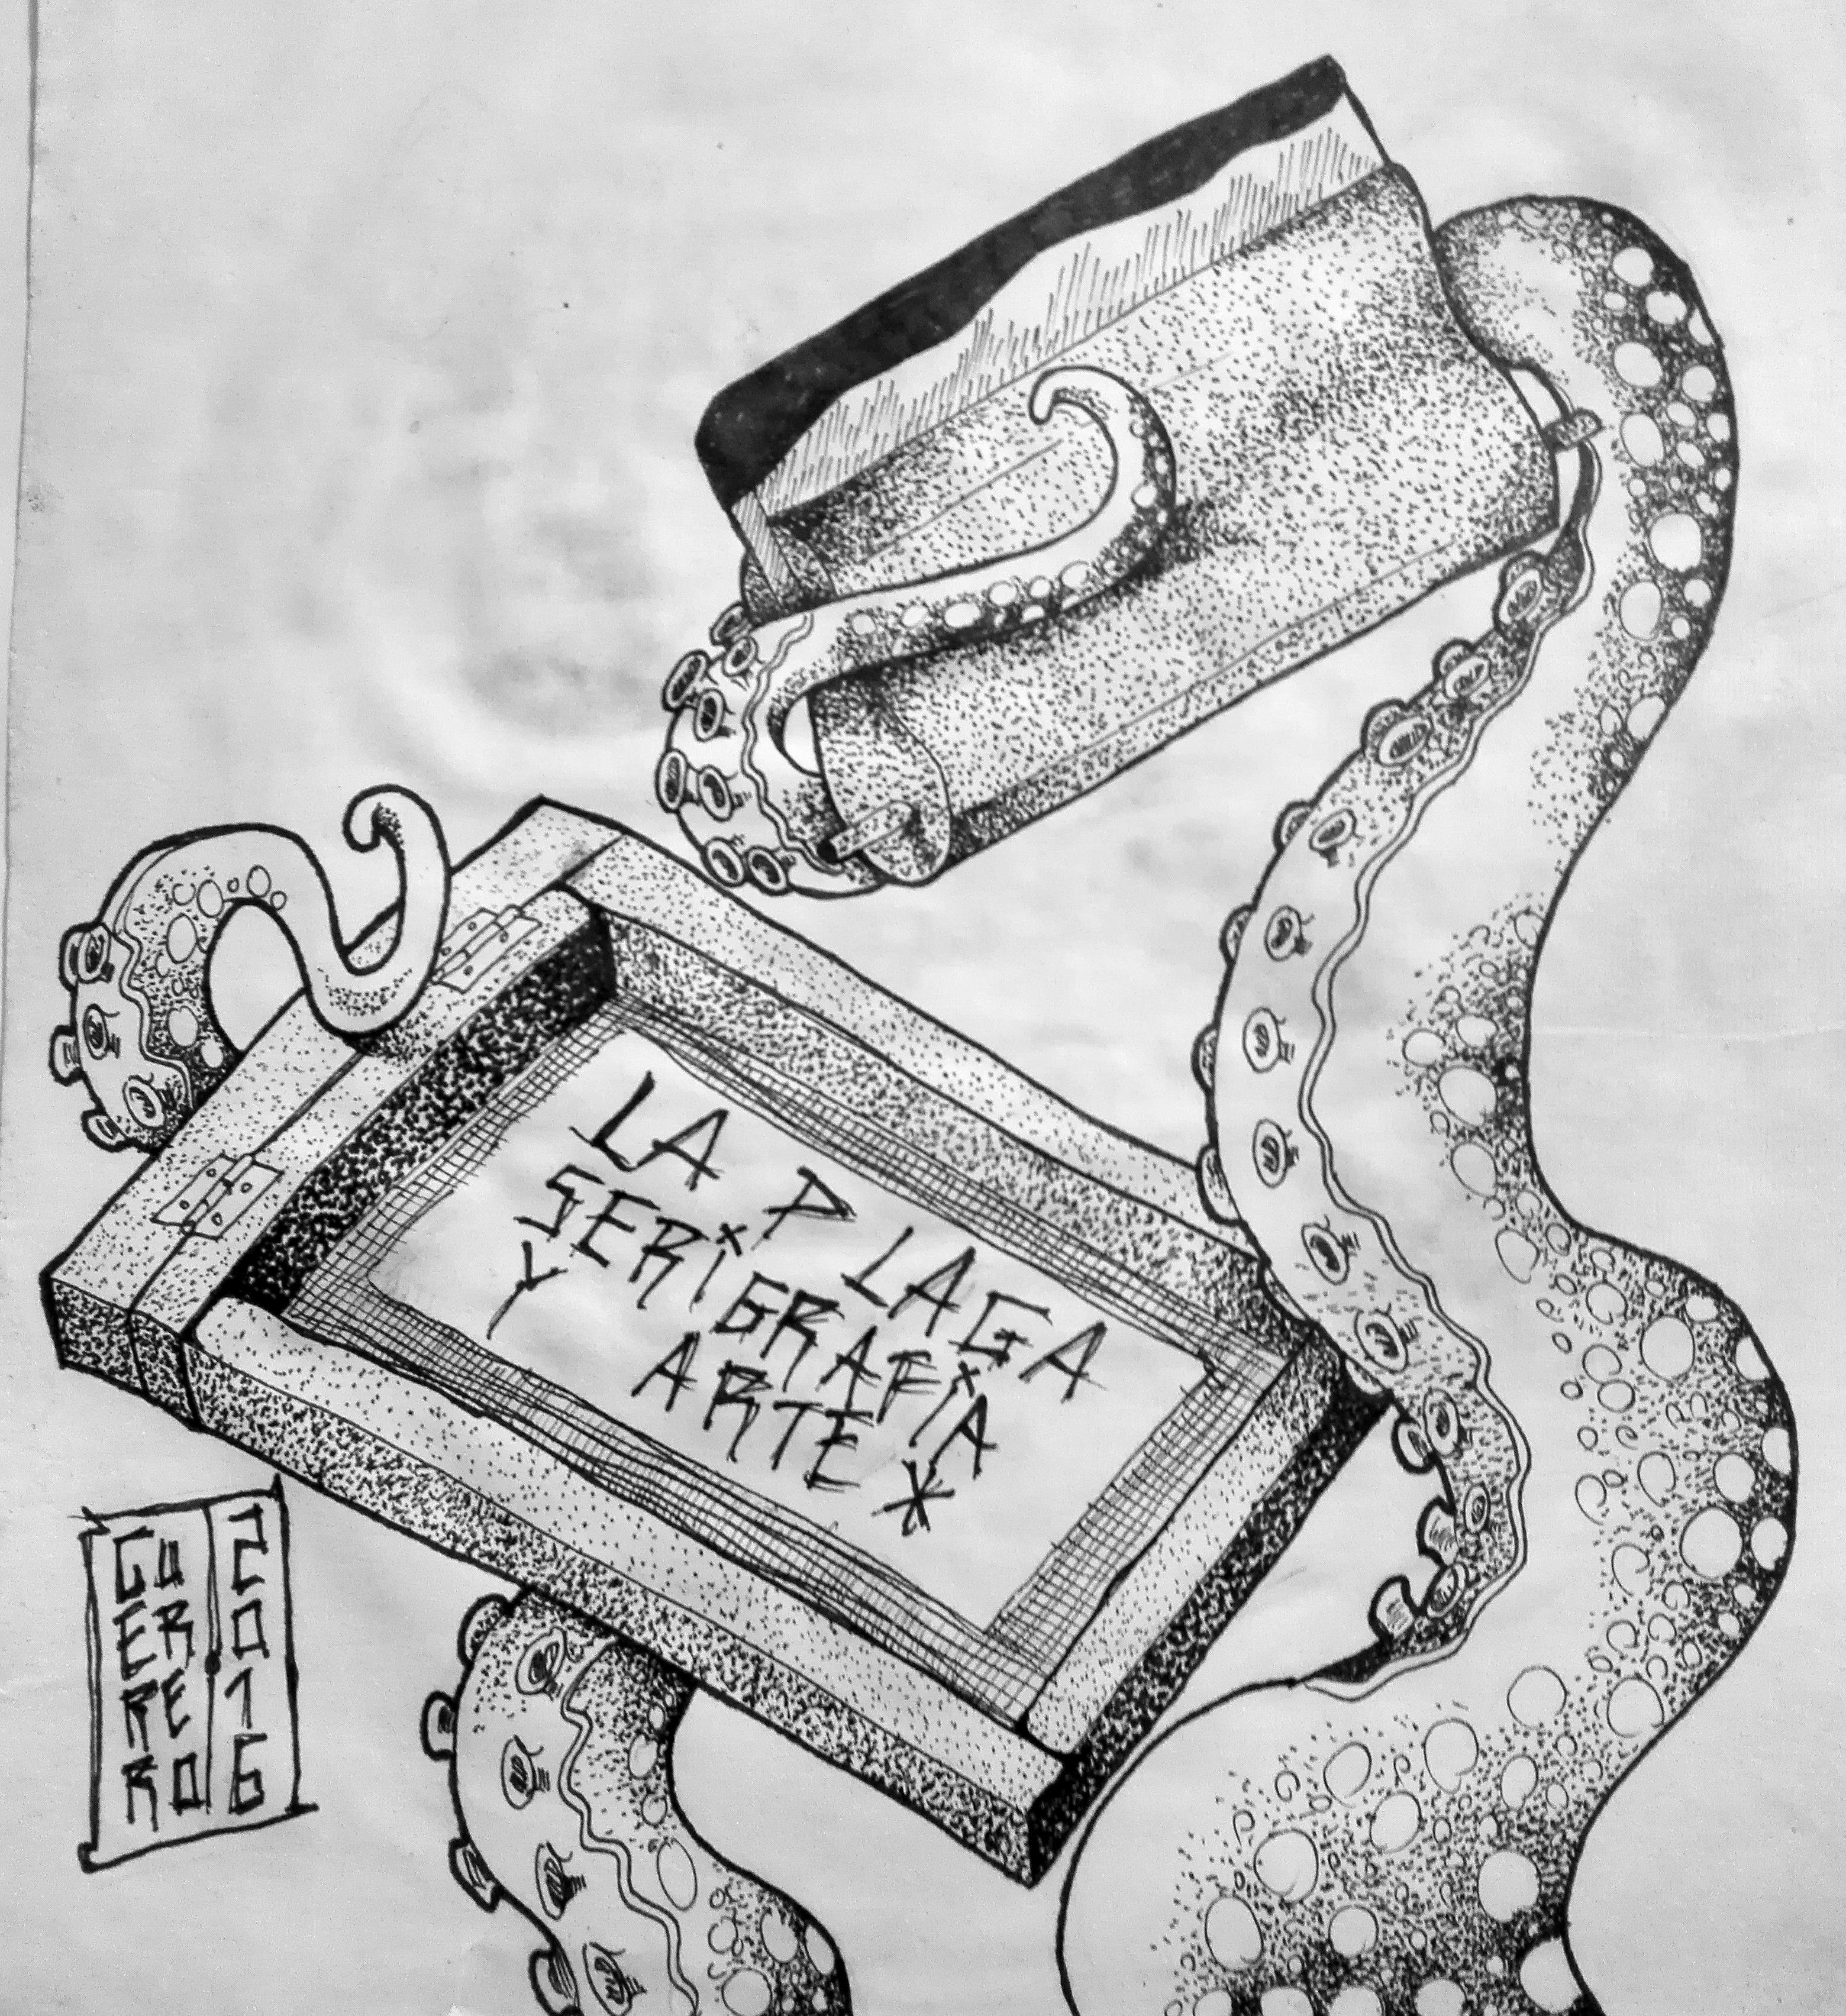 LA PLAGA
SERiGRAFiA
Y ARTE*
GU
ER
RE
RO
2016